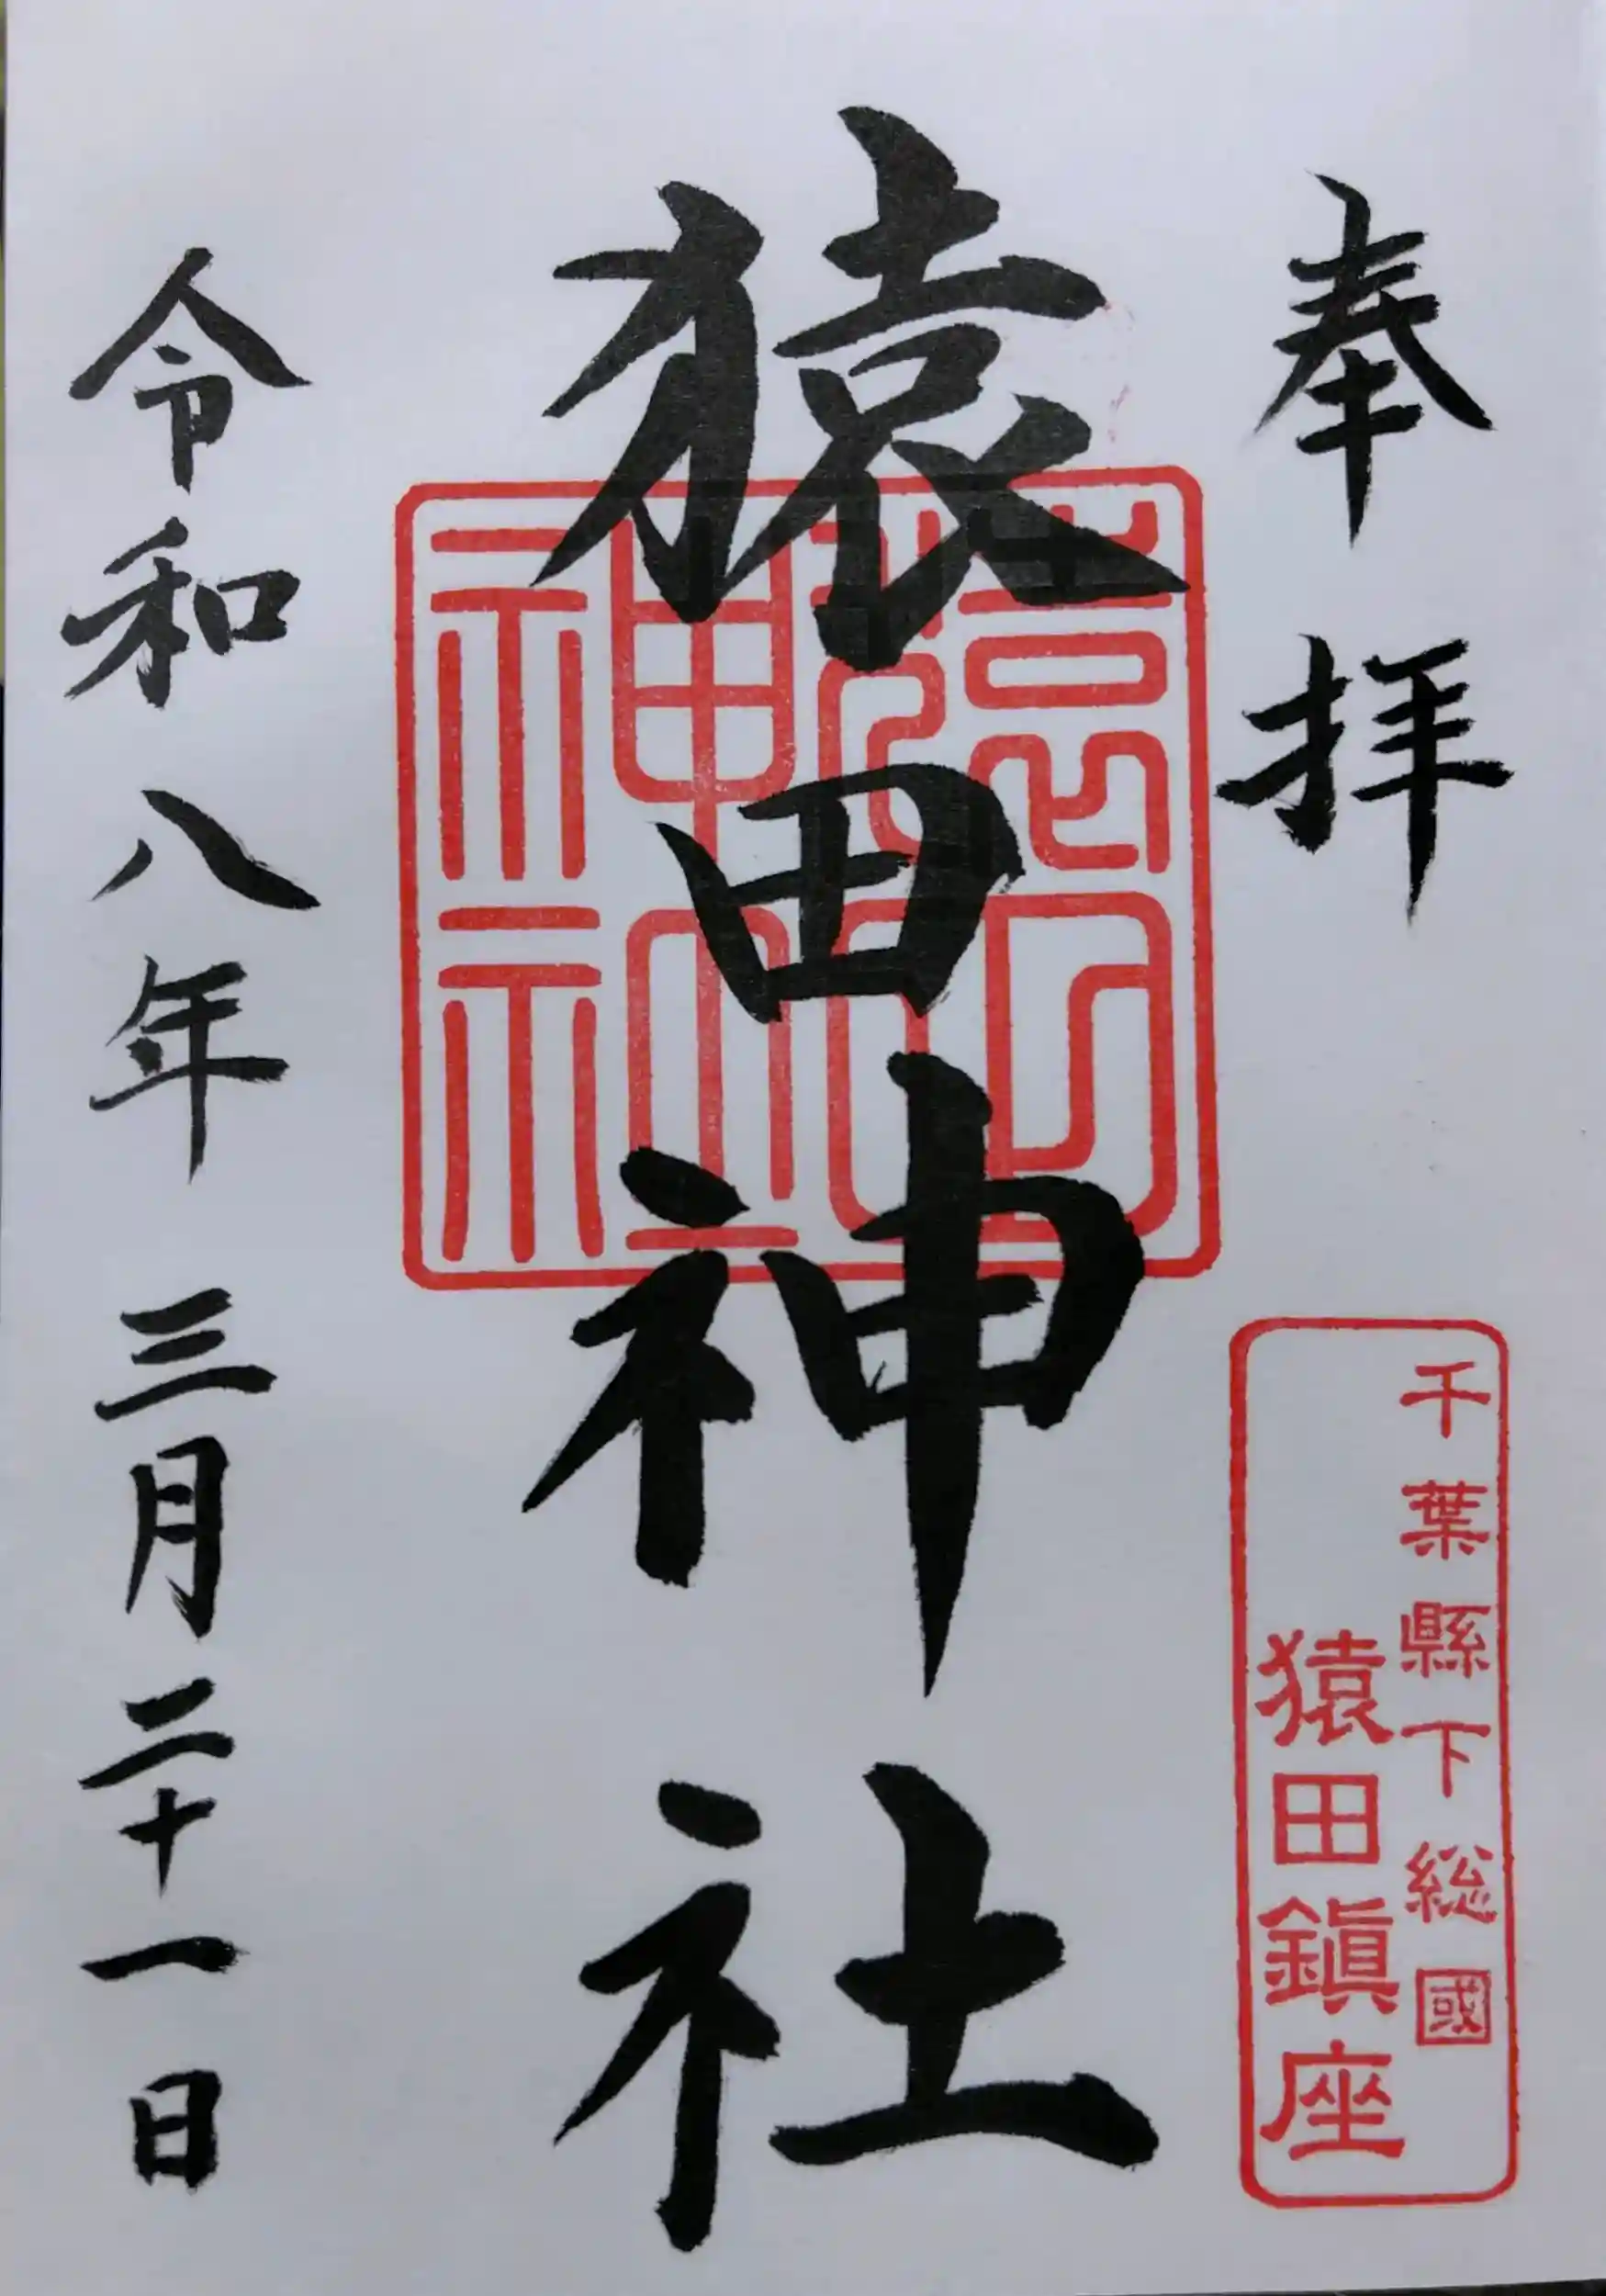 奉拝
千葉縣下総國
猿田鎮座
猿田神社
猿田神社
令和八年三月二十一日